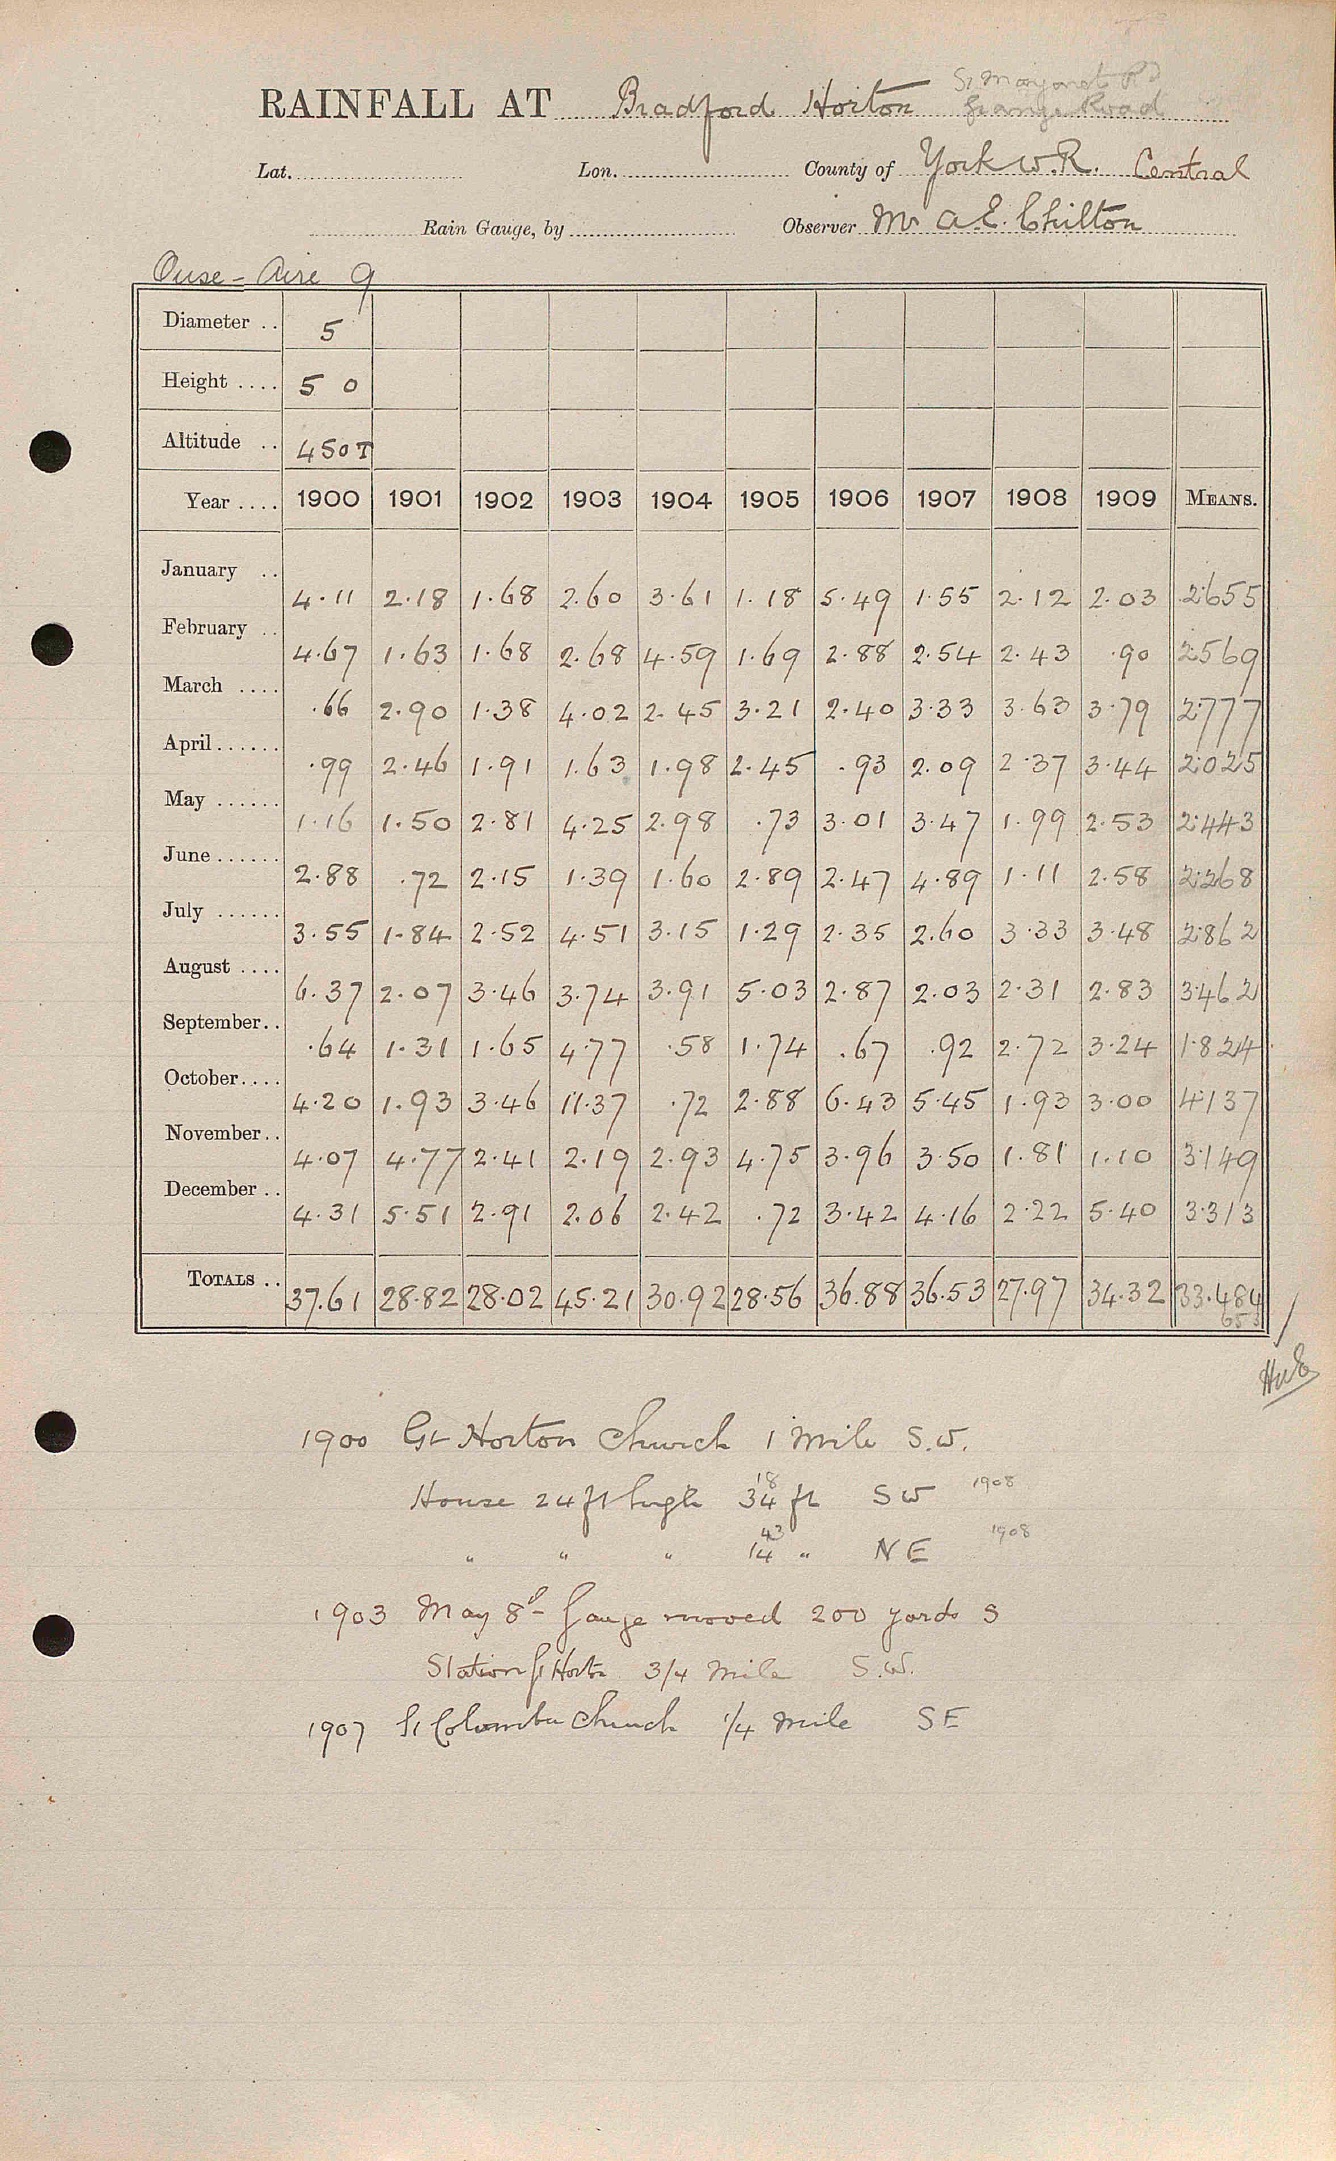 St Margaret Rd
RAINFALL AT Bradford Horton Grange Road
Lat. Lon. County of York W.R. Central
Rain Gauge, by Observer Mr A.E. Chilton
Ouse - Aire 9
Diameter .. 5
Height .... 5 0
Altitude .. 450 T
Year .... 1900 1901 1902 1903 1904 1905 1906 1907 1908 1909 MEANS.
January .. 4.11 2.18 1.68 2.60 3.61 1.18 5.49 1.55 2.12 2.03 2.655
February .. 4.67 1.63 1.68 2.68 4.59 1.69 2.88 2.54 2.43 .90 2569
March .... .66 2.90 1.38 4.02 2.45 3.21 2.40 3.33 3.63 3.79 2.777
April...... .99 2.46 1.91 1.63 1.98 2.45 .93 2.09 2.37 3.44 2.025
May ...... 1.16 1.50 2.81 4.25 2.98 .73 3.01 3.47 1.99 2.53 2.443
June ...... 2.88 .72 2.15 1.39 1.60 2.89 2.47 4.89 1.11 2.58 2.268
July ...... 3.55 1.84 2.52 4.51 3.15 1.29 2.35 2.60 3.33 3.48 2.862
August .... 6.37 2.07 3.46 3.74 3.91 5.03 2.87 2.03 2.31 2.83 3.462
September.. .64 1.31 1.65 4.77 .58 1.74 .67 .92 2.72 3.24 1.824
October.... 4.20 1.93 3.46 11.37 .72 2.88 6.43 5.45 1.93 3.00 4.137
November.. 4.07 4.77 2.41 2.19 2.93 4.75 3.96 3.50 1.81 1.10 3.149
December .. 4.31 5.51 2.91 2.06 2.42 .72 3.42 4.16 2.22 5.40 3.313
TOTALS .. 37.61 28.82 28.02 45.21 30.92 28.56 36.88 36.53 27.97 34.32 33.484
1900 Gt Horton Church 1 Mile S.W.
18
House 24 ft high 34 ft SW 1908
43
" " " 14 " NE 1908
1903 May 8th Gauge moved 200 yards S
Station Gt Horton 3/4 Mile S.W.
1907 St Columba Church 1/4 Mile SE